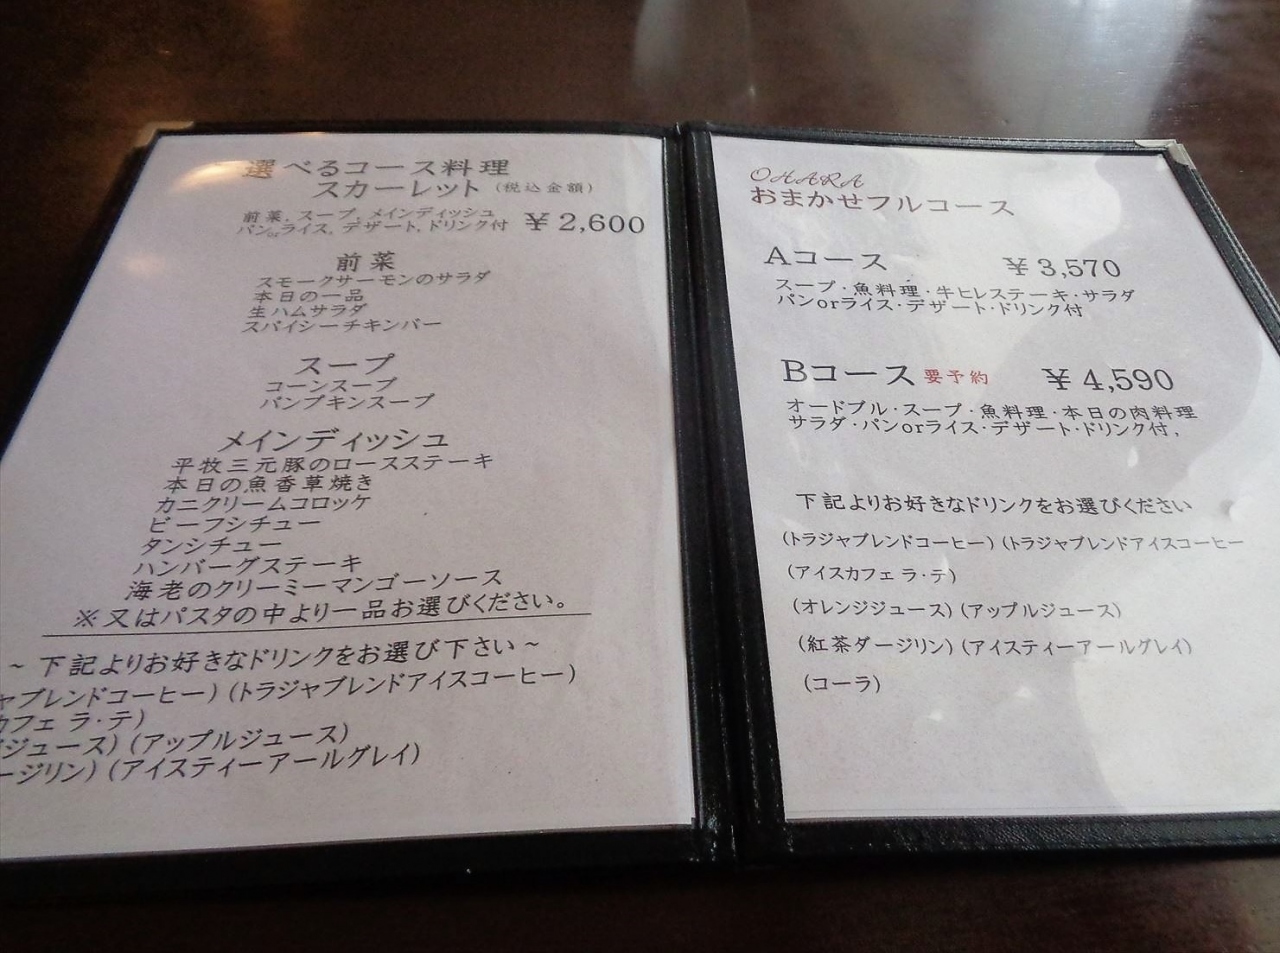 選べるコース料理
スカーレット (税込金額)
前菜, スープ, メインディッシュ
パンorライス, デザート, ドリンク付 ￥2,600
前菜
スモークサーモンのサラダ
本日の一品
生ハムサラダ
スパイシーチキンバー
スープ
コーンスープ
パンプキンスープ
メインディッシュ
平牧三元豚のロースステーキ
本日の魚香草焼き
カニクリームコロッケ
ビーフシチュー
タンシチュー
ハンバーグステーキ
海老のクリーミーマンゴーソース
※又はパスタの中より一品お選びください。
~下記よりお好きなドリンクをお選び下さい~
ャブレンドコーヒー) (トラジャブレンドアイスコーヒー)
カフェ ラ・テ)
ジュース) (アップルジュース)
ージリン) (アイスティーアールグレイ)
OHARA
おまかせフルコース
Aコース ￥3,570
スープ・魚料理・牛ヒレステーキ・サラダ
パンorライス・デザート・ドリンク付
Bコース 要予約 ￥4,590
オードブル・スープ・魚料理・本日の肉料理
サラダ・パンorライス・デザート・ドリンク付,
下記よりお好きなドリンクをお選びください
(トラジャブレンドコーヒー) (トラジャブレンドアイスコーヒー
(アイスカフェ ラ・テ)
(オレンジジュース) (アップルジュース)
(紅茶ダージリン) (アイスティーアールグレイ)
(コーラ)